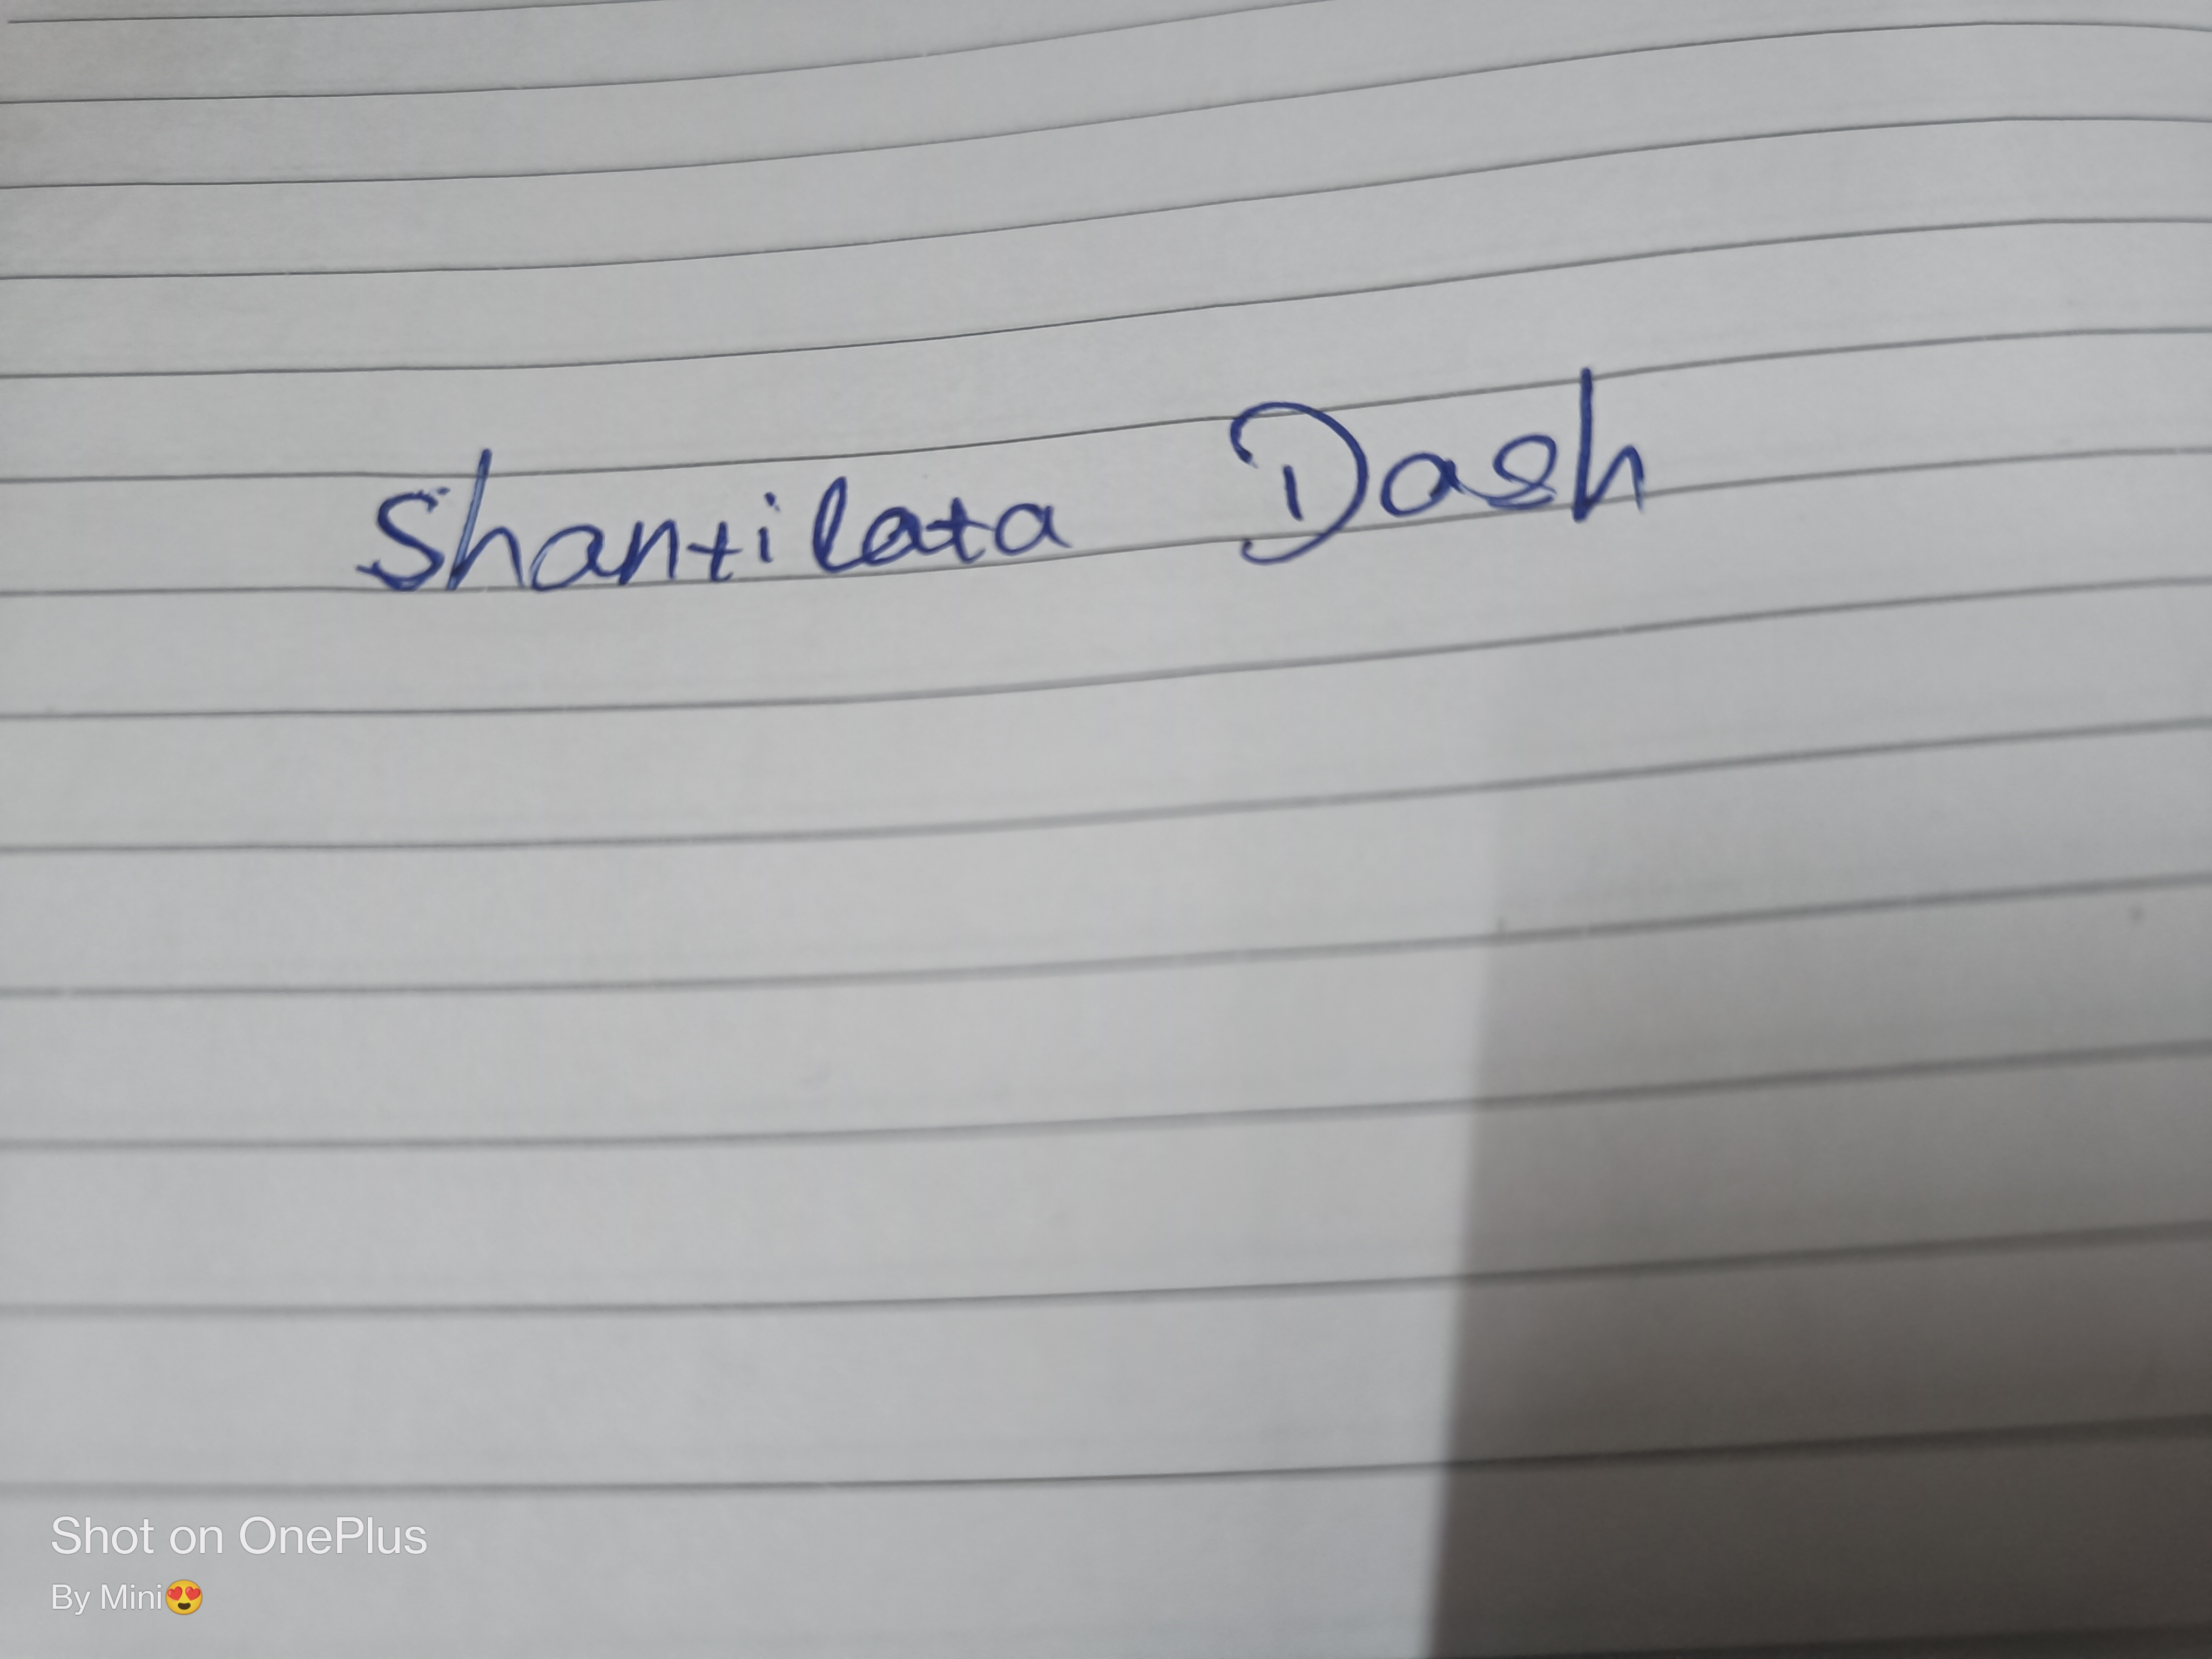 Shantilata Dash
Shot on OnePlus
By Mini😍